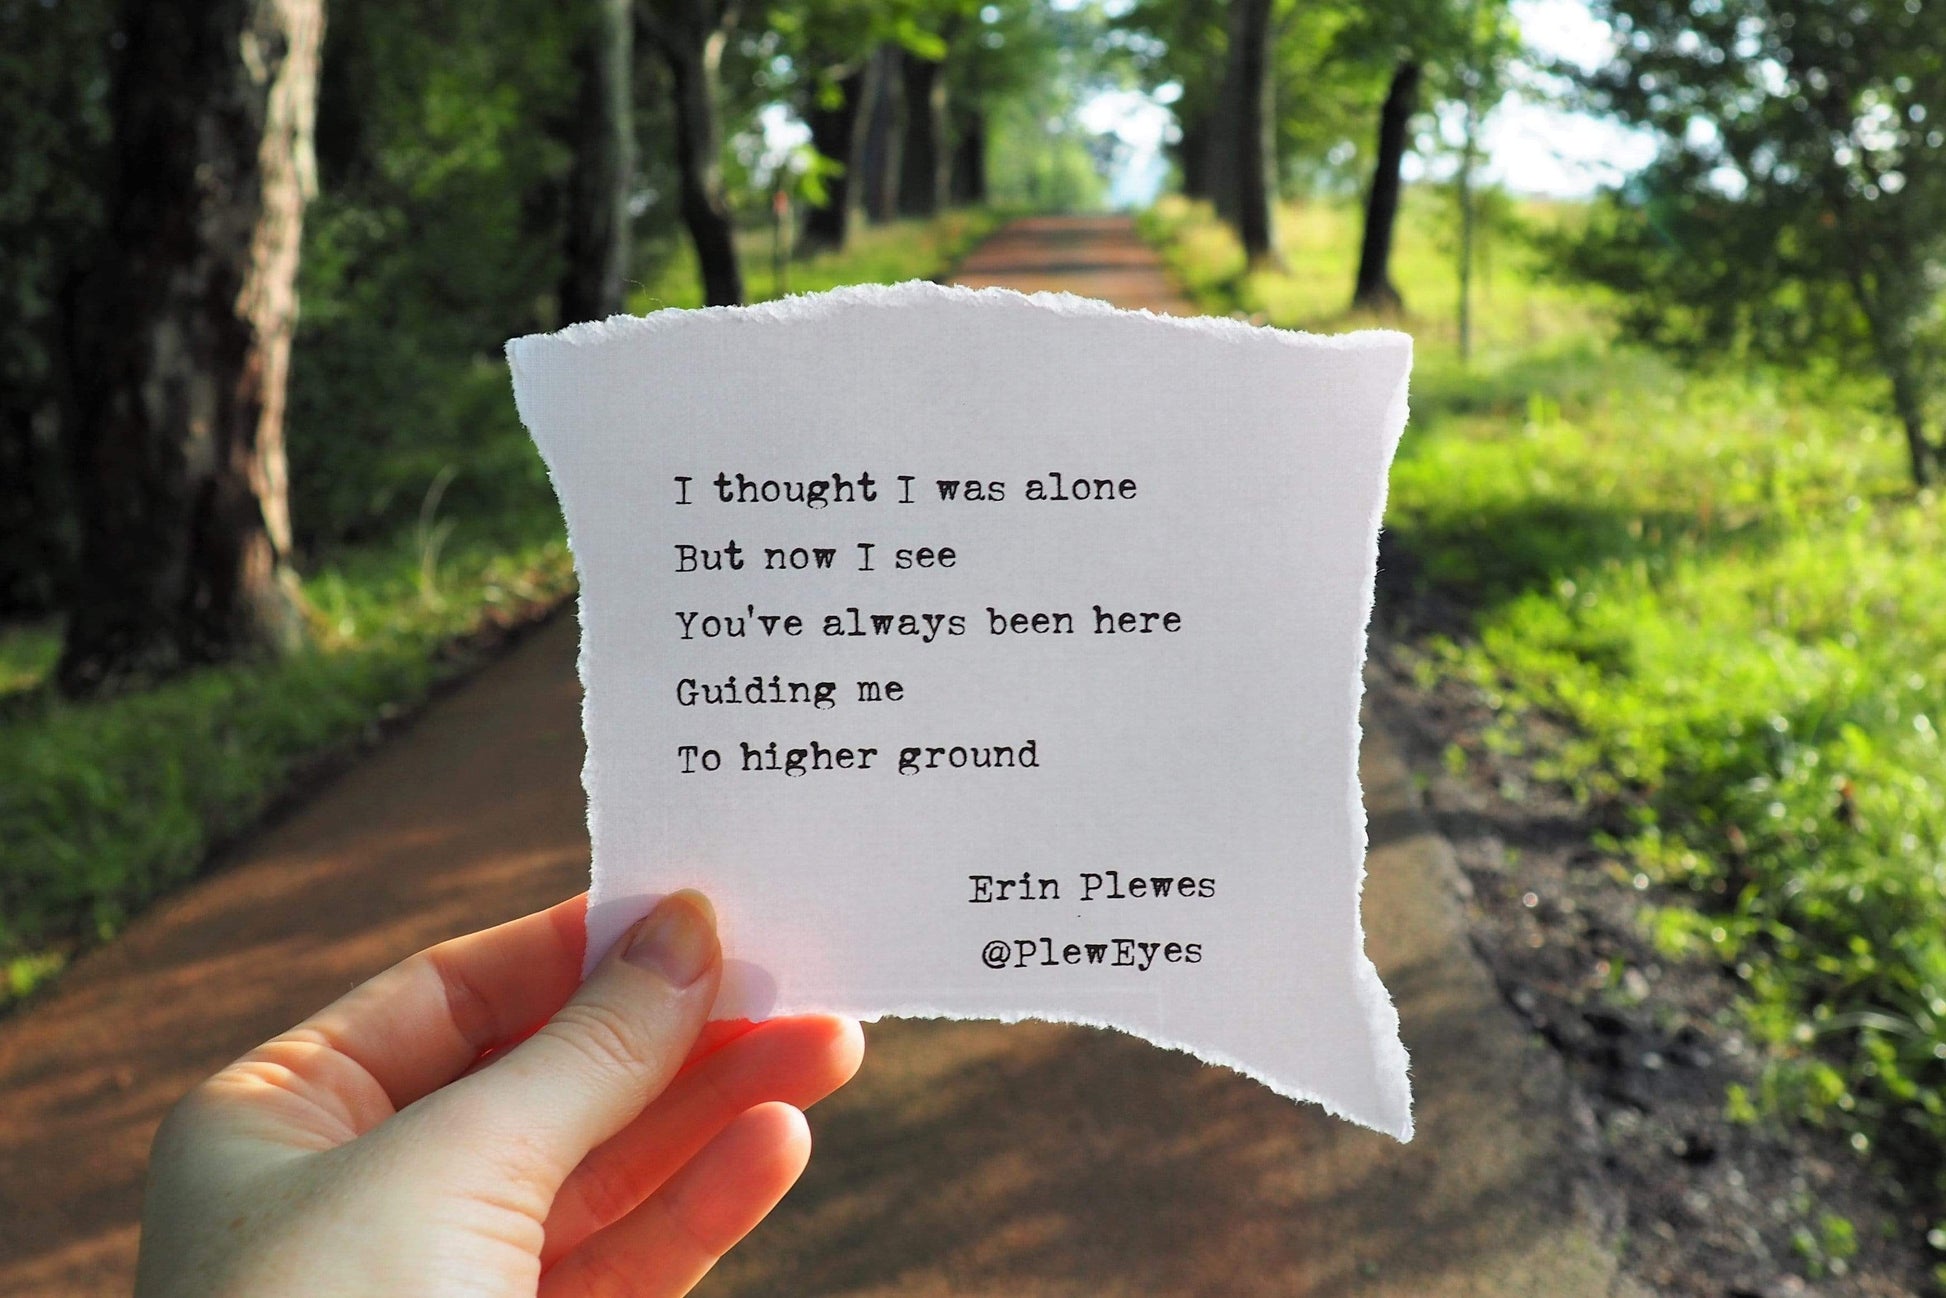 I thought I was alone
But now I see
You've always been here
Guiding me
To higher ground
Erin Plewes
@PlewEyes